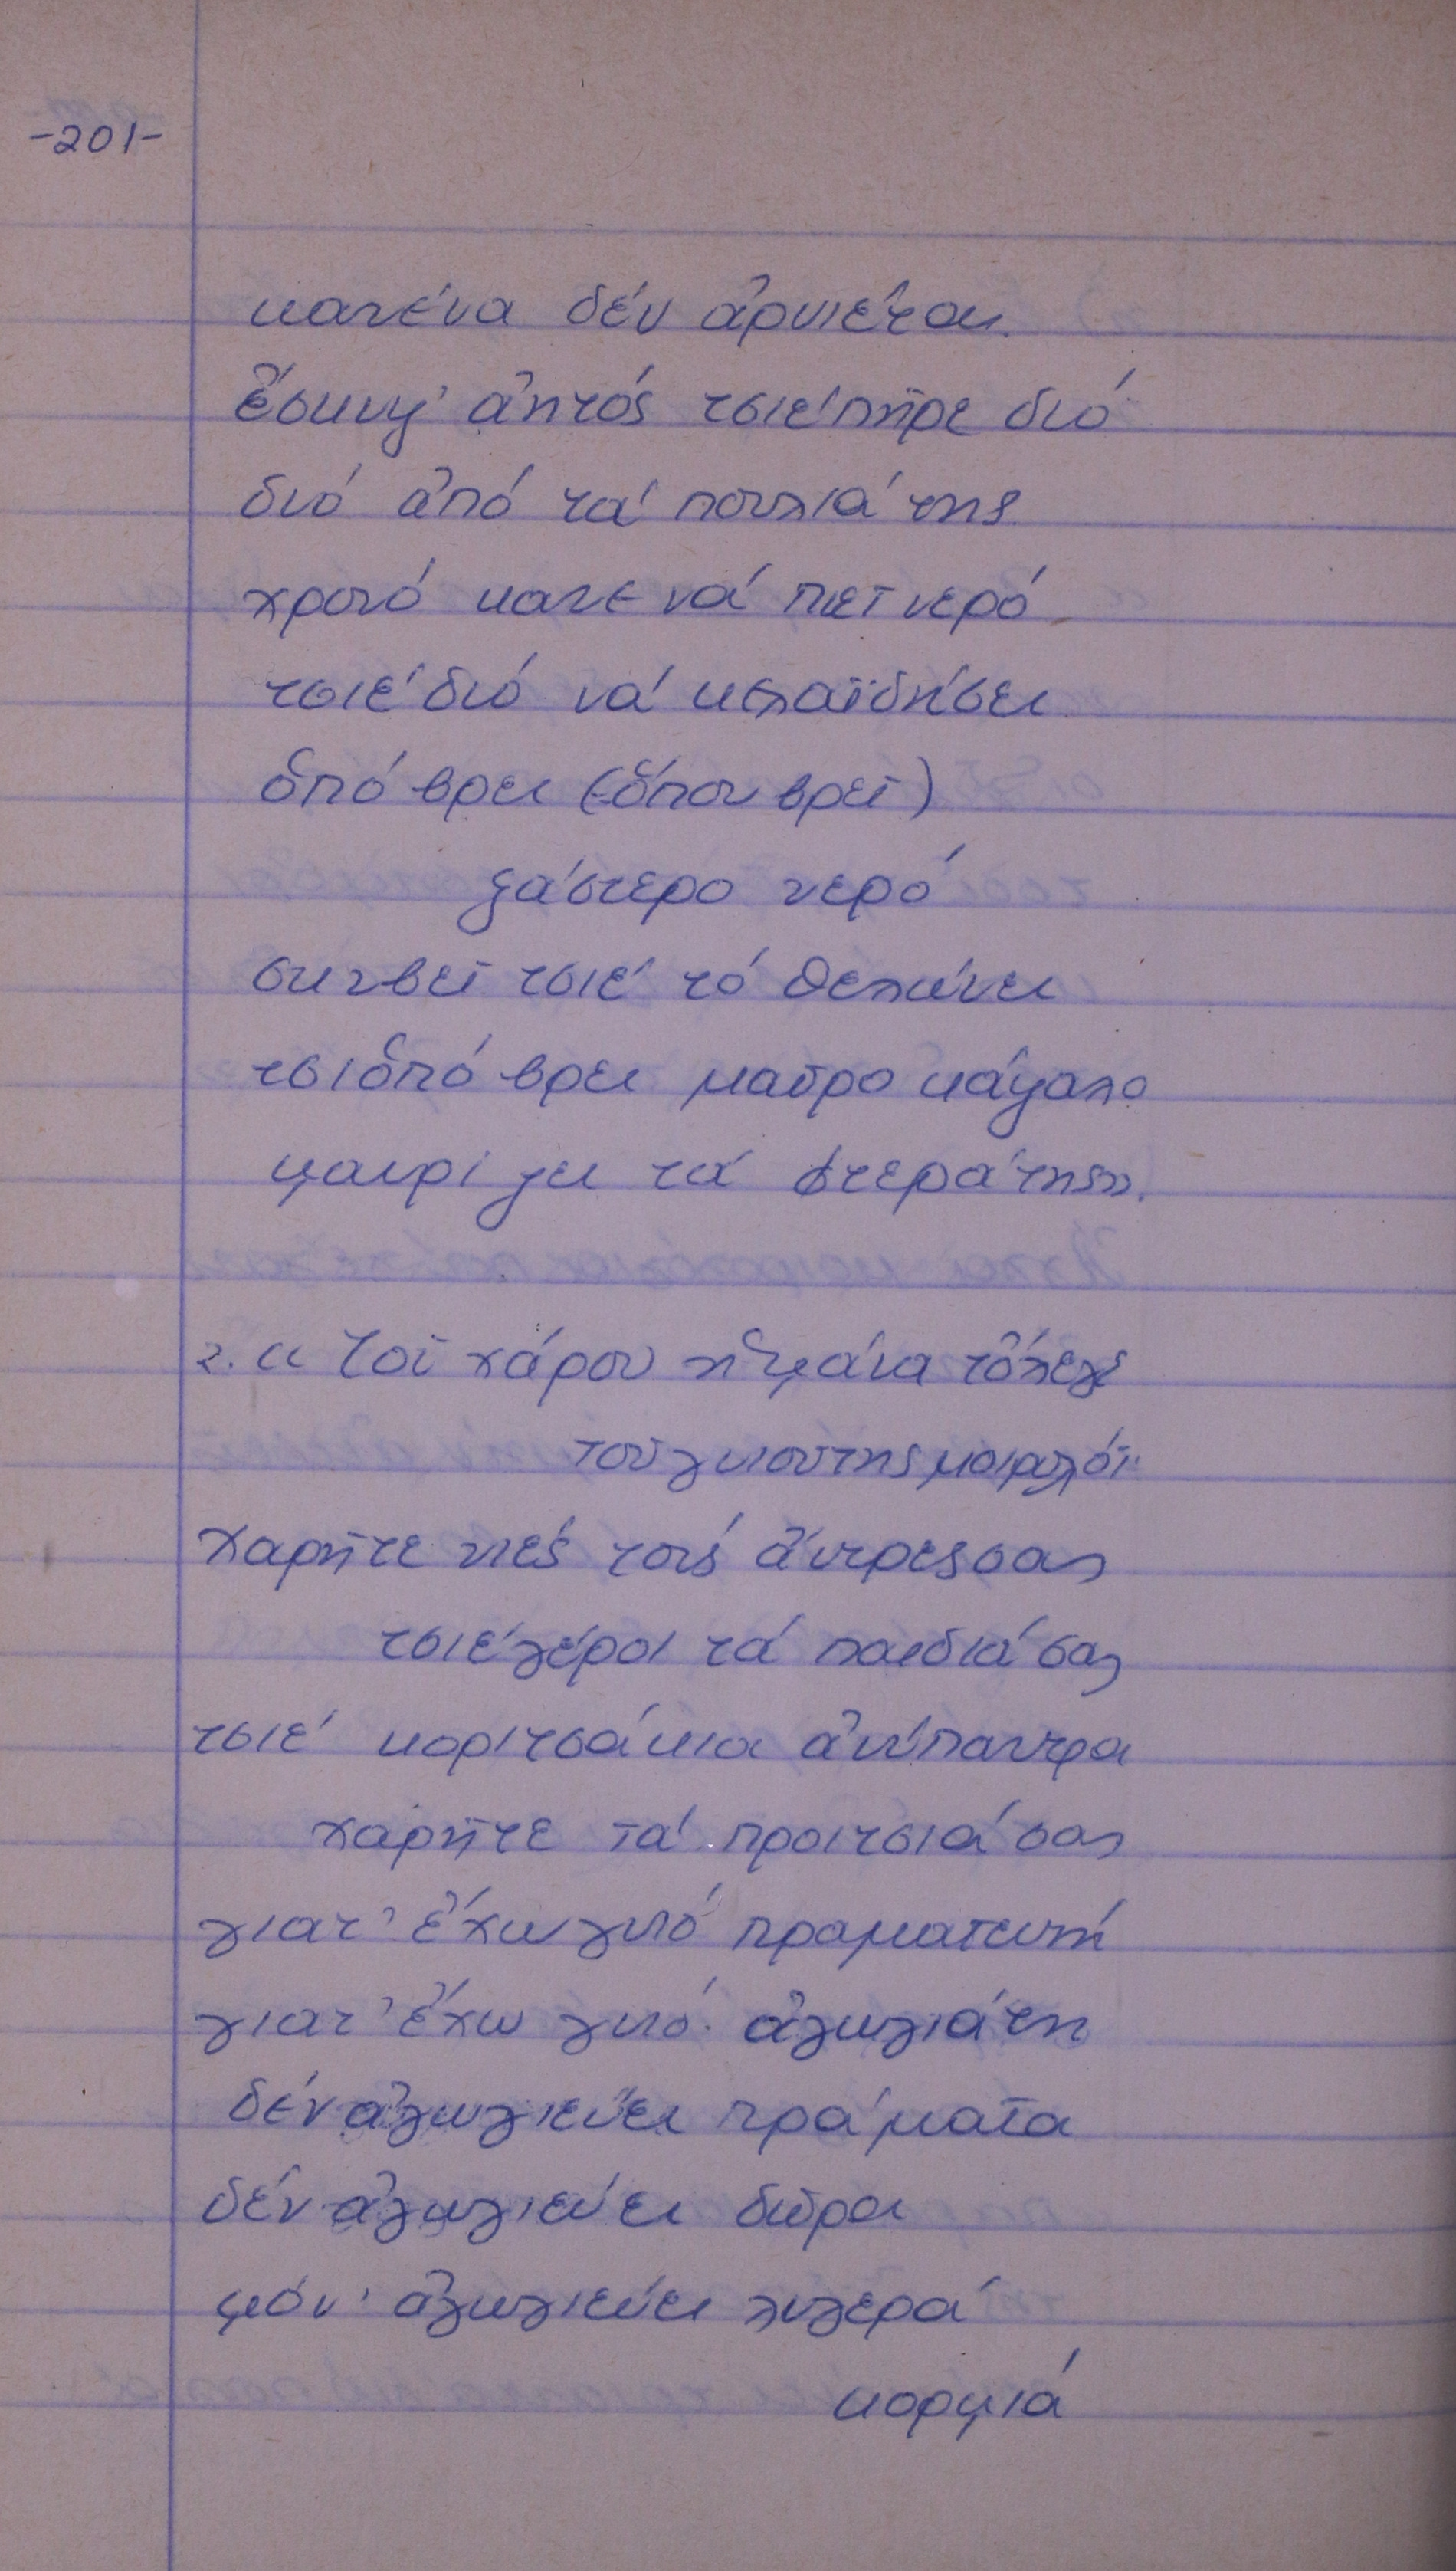 -201-
κανένα δέν ἀρνιέται.
ἔσκυψ' ἀητός τσιέ πῆρε διό
διό ἀπό τά πουλιά της
χρονό κανε νά πιεῖ νερό
τσιέ διό νά κελαϊδήσει
ὁπό βρει (ὅπου βρεῖ)
ξάστερο νερό
σκυβεῖ τσιέ τό θελώνει
τσιὁπό βρει μαῦρο κάψαλο
μαυρίζει τά φτερά της.
2. α Τοῦ χάρου ἡ μάνα τὄλεγε
τοῦ γυιοῦ της μοιρολόι
Χαρῆτε νιές τούς ἄντρες σας
τσιέ γέροι τά παιδιά σας
τσιέ κοριτσάκια ἀνύπαντρα
χαρῆτε τά προιτσιά σας
γιατ' ἔχω γυιό πραματευτή
γιατ' ἔχω γυιό ἀγωγιάτη
δέν ἀγωγιεύει πράματα
δέν ἀγωγιεύει δῶρα
μόν' ἀγωγιεύει λυγερά
κορμιά